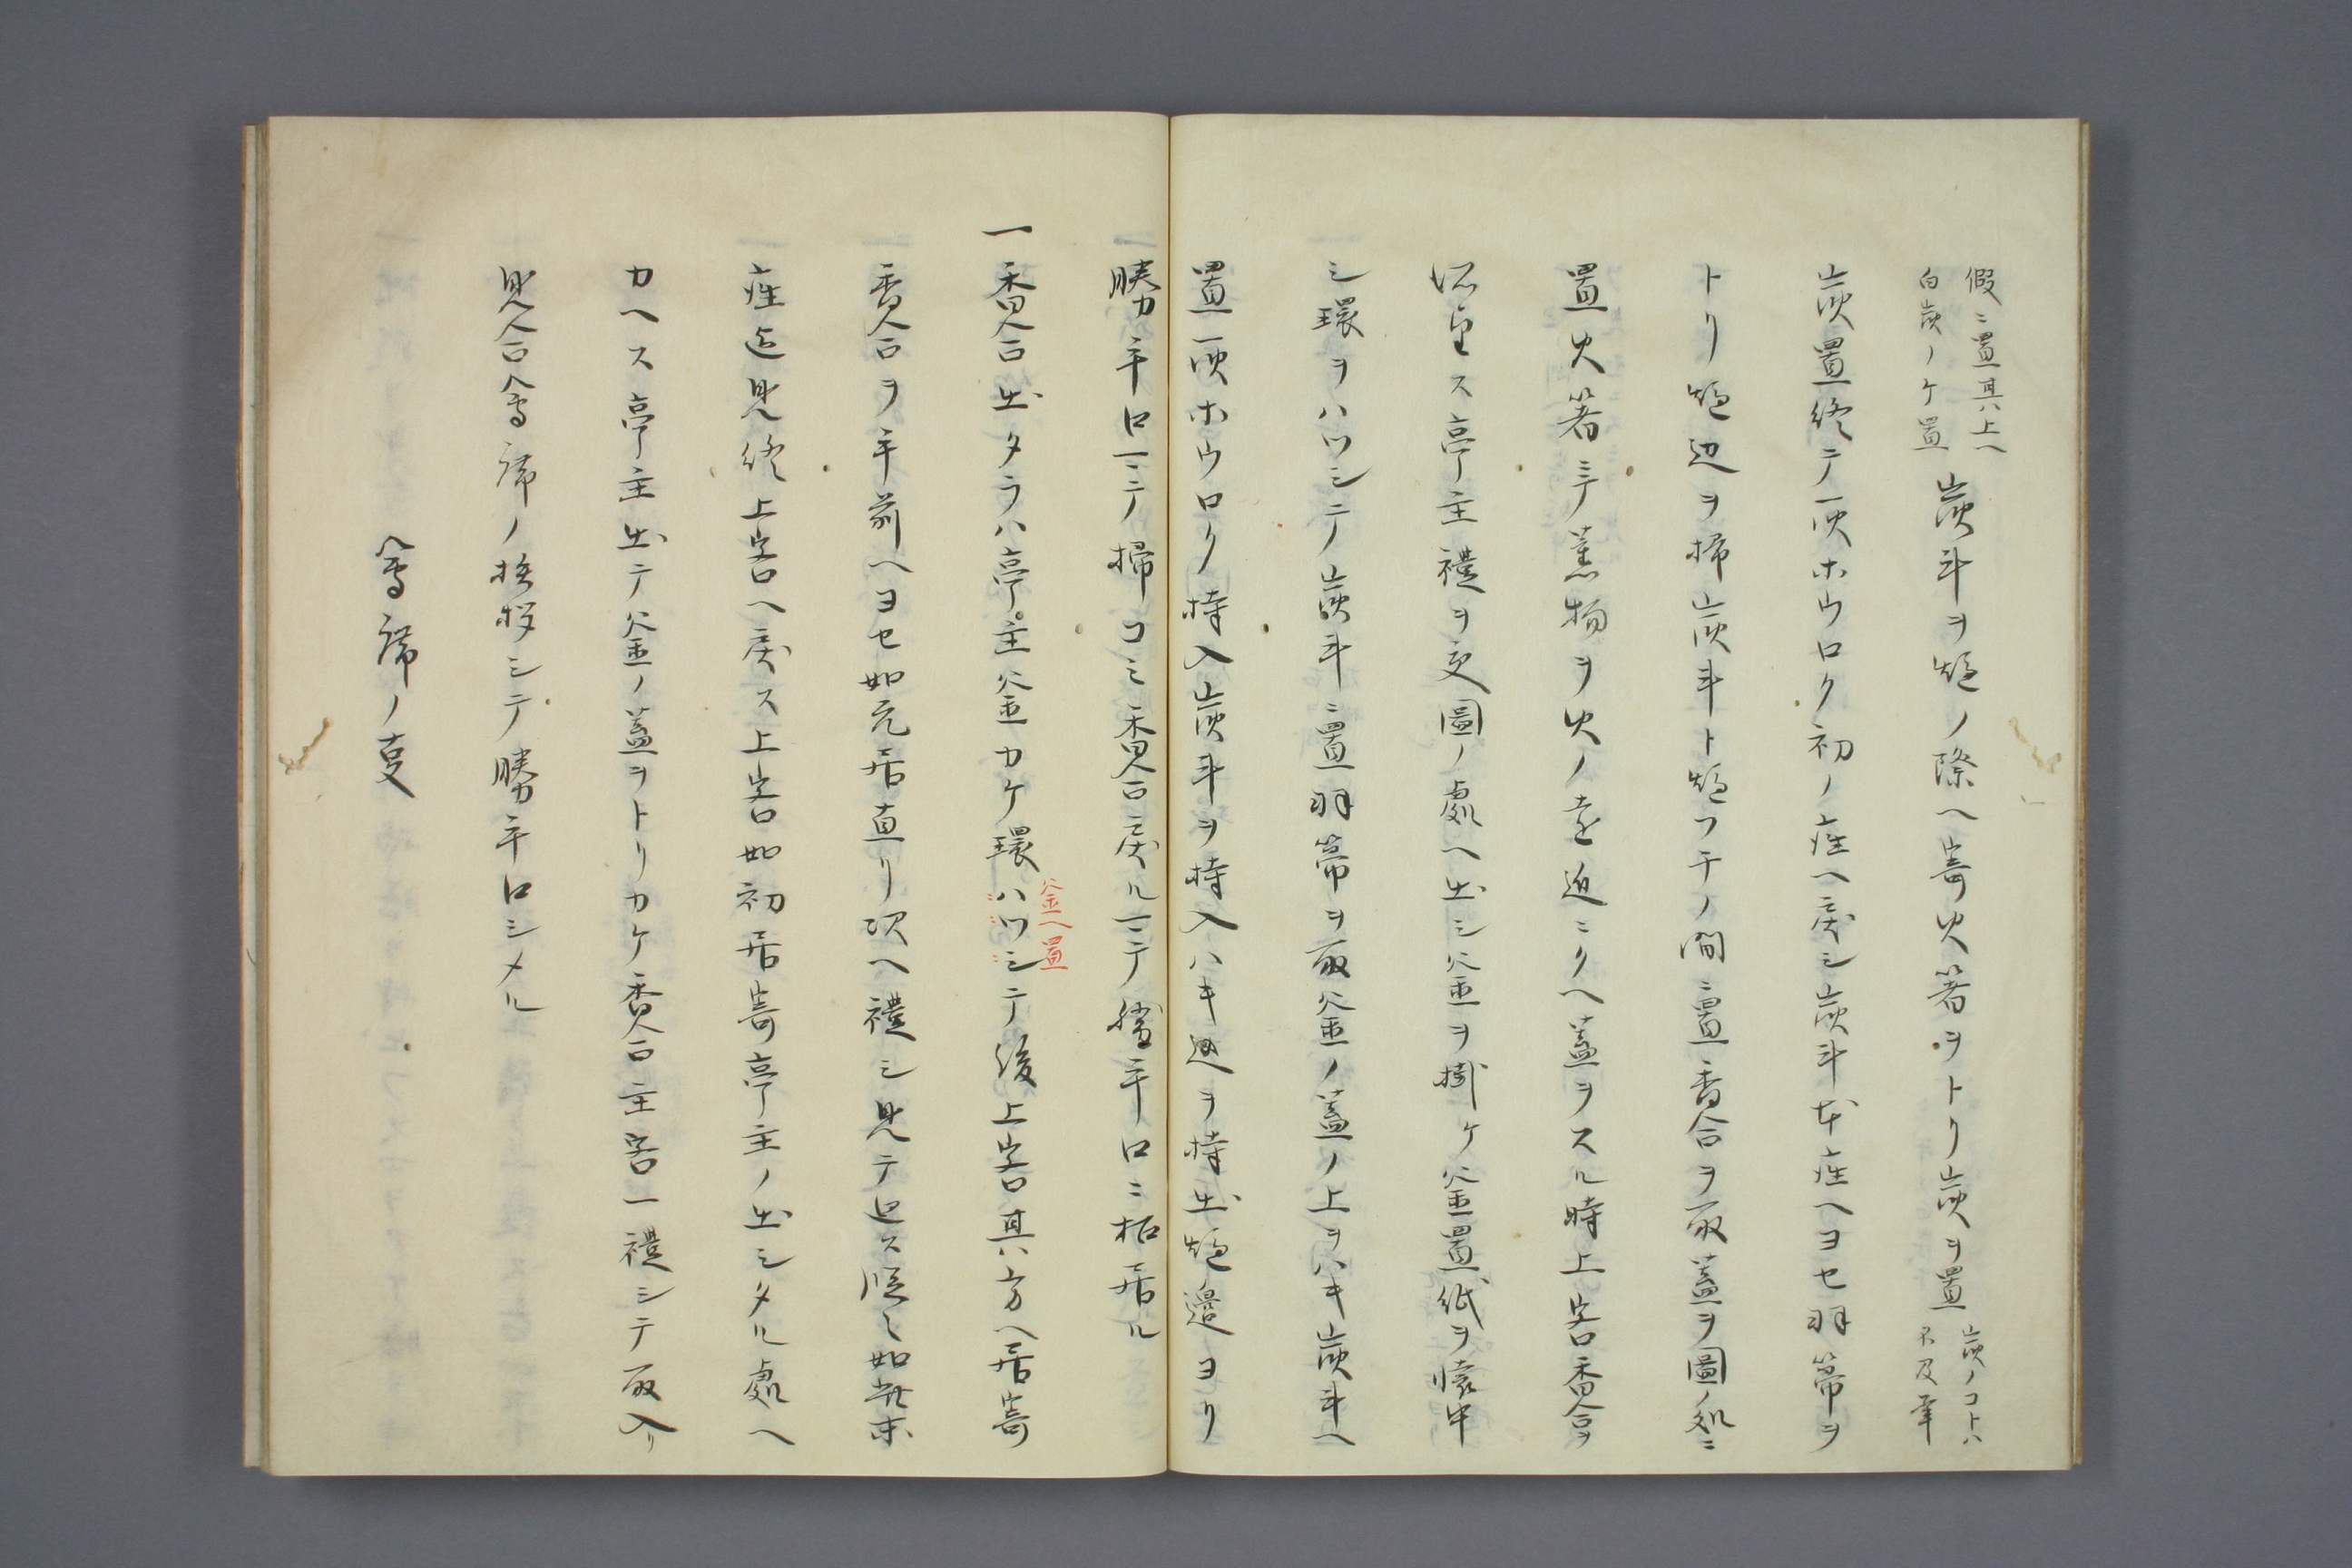 假ニ置其上ヘ
白炭ノケ置
炭斗ヲ爐ノ際ヘ寄火箸ヲトリ炭ヲ置
炭ノコトハ
不及筆
炭置終テ一吹ホウロク初ノ座ヘ戻シ炭斗本座ヘヨセ羽箒ヲ
トリ爐辺ヲ掃炭斗ト爐フチノ間ニ置香合ヲ取蓋ヲ圖ノ処ニ
置火箸ニテ薫物ヲ火ノ遠近ニクヘ蓋ヲスル時上客香合ヲ
所望ス亭主禮ヲ交圖ノ處ヘ出シ釜ヲ掛ケ釜置紙ヲ懐中
シ環ヲハツシテ炭斗ニ置羽箒ヲ取釜ノ蓋ノ上ヲハキ炭斗ヘ
置一吹ホウロク持入炭斗ヲ持入ハキ込ヲ持出爐邉ヨリ
勝手口ニテ掃コミ香合戻ルニテ勝手口ニ扣居ル
一香合出タラハ亭主釜カケ環ハツシテ後上客其方ヘ居寄
釜ヘ置
香合ヲ手前ヘヨセ如元居直リ次ヘ禮シ見テ廻ス段々如斯末
座迠見終上客ヘ戻ス上客如初居寄亭主ノ出シタル處ヘ
カヘス亭主出テ釜ノ蓋ヲトリカケ香合主客一禮シテ取入リ
見合會席ノ挨拶シテ勝手口シメル
會席ノ㕝